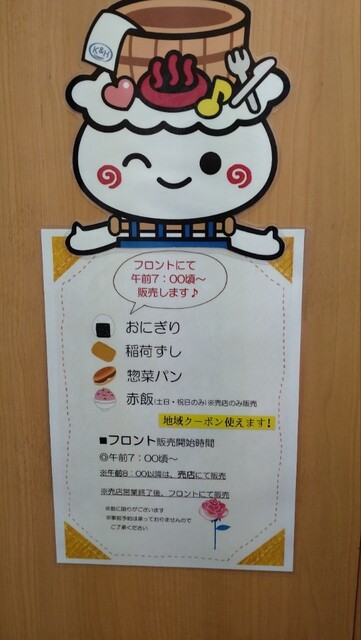 K&H
フロントにて
午前7:00頃～
販売します♪
おにぎり
稲荷ずし
惣菜パン
赤飯(土日・祝日のみ)※売店のみ販売
地域クーポン使えます!
■フロント販売開始時間
◎午前7:00頃～
※午前8:00以降は、売店にて販売
※売店営業終了後、フロントにて販売
※数に限りがございます
※事前予約は承っておりませんので
ご了承ください